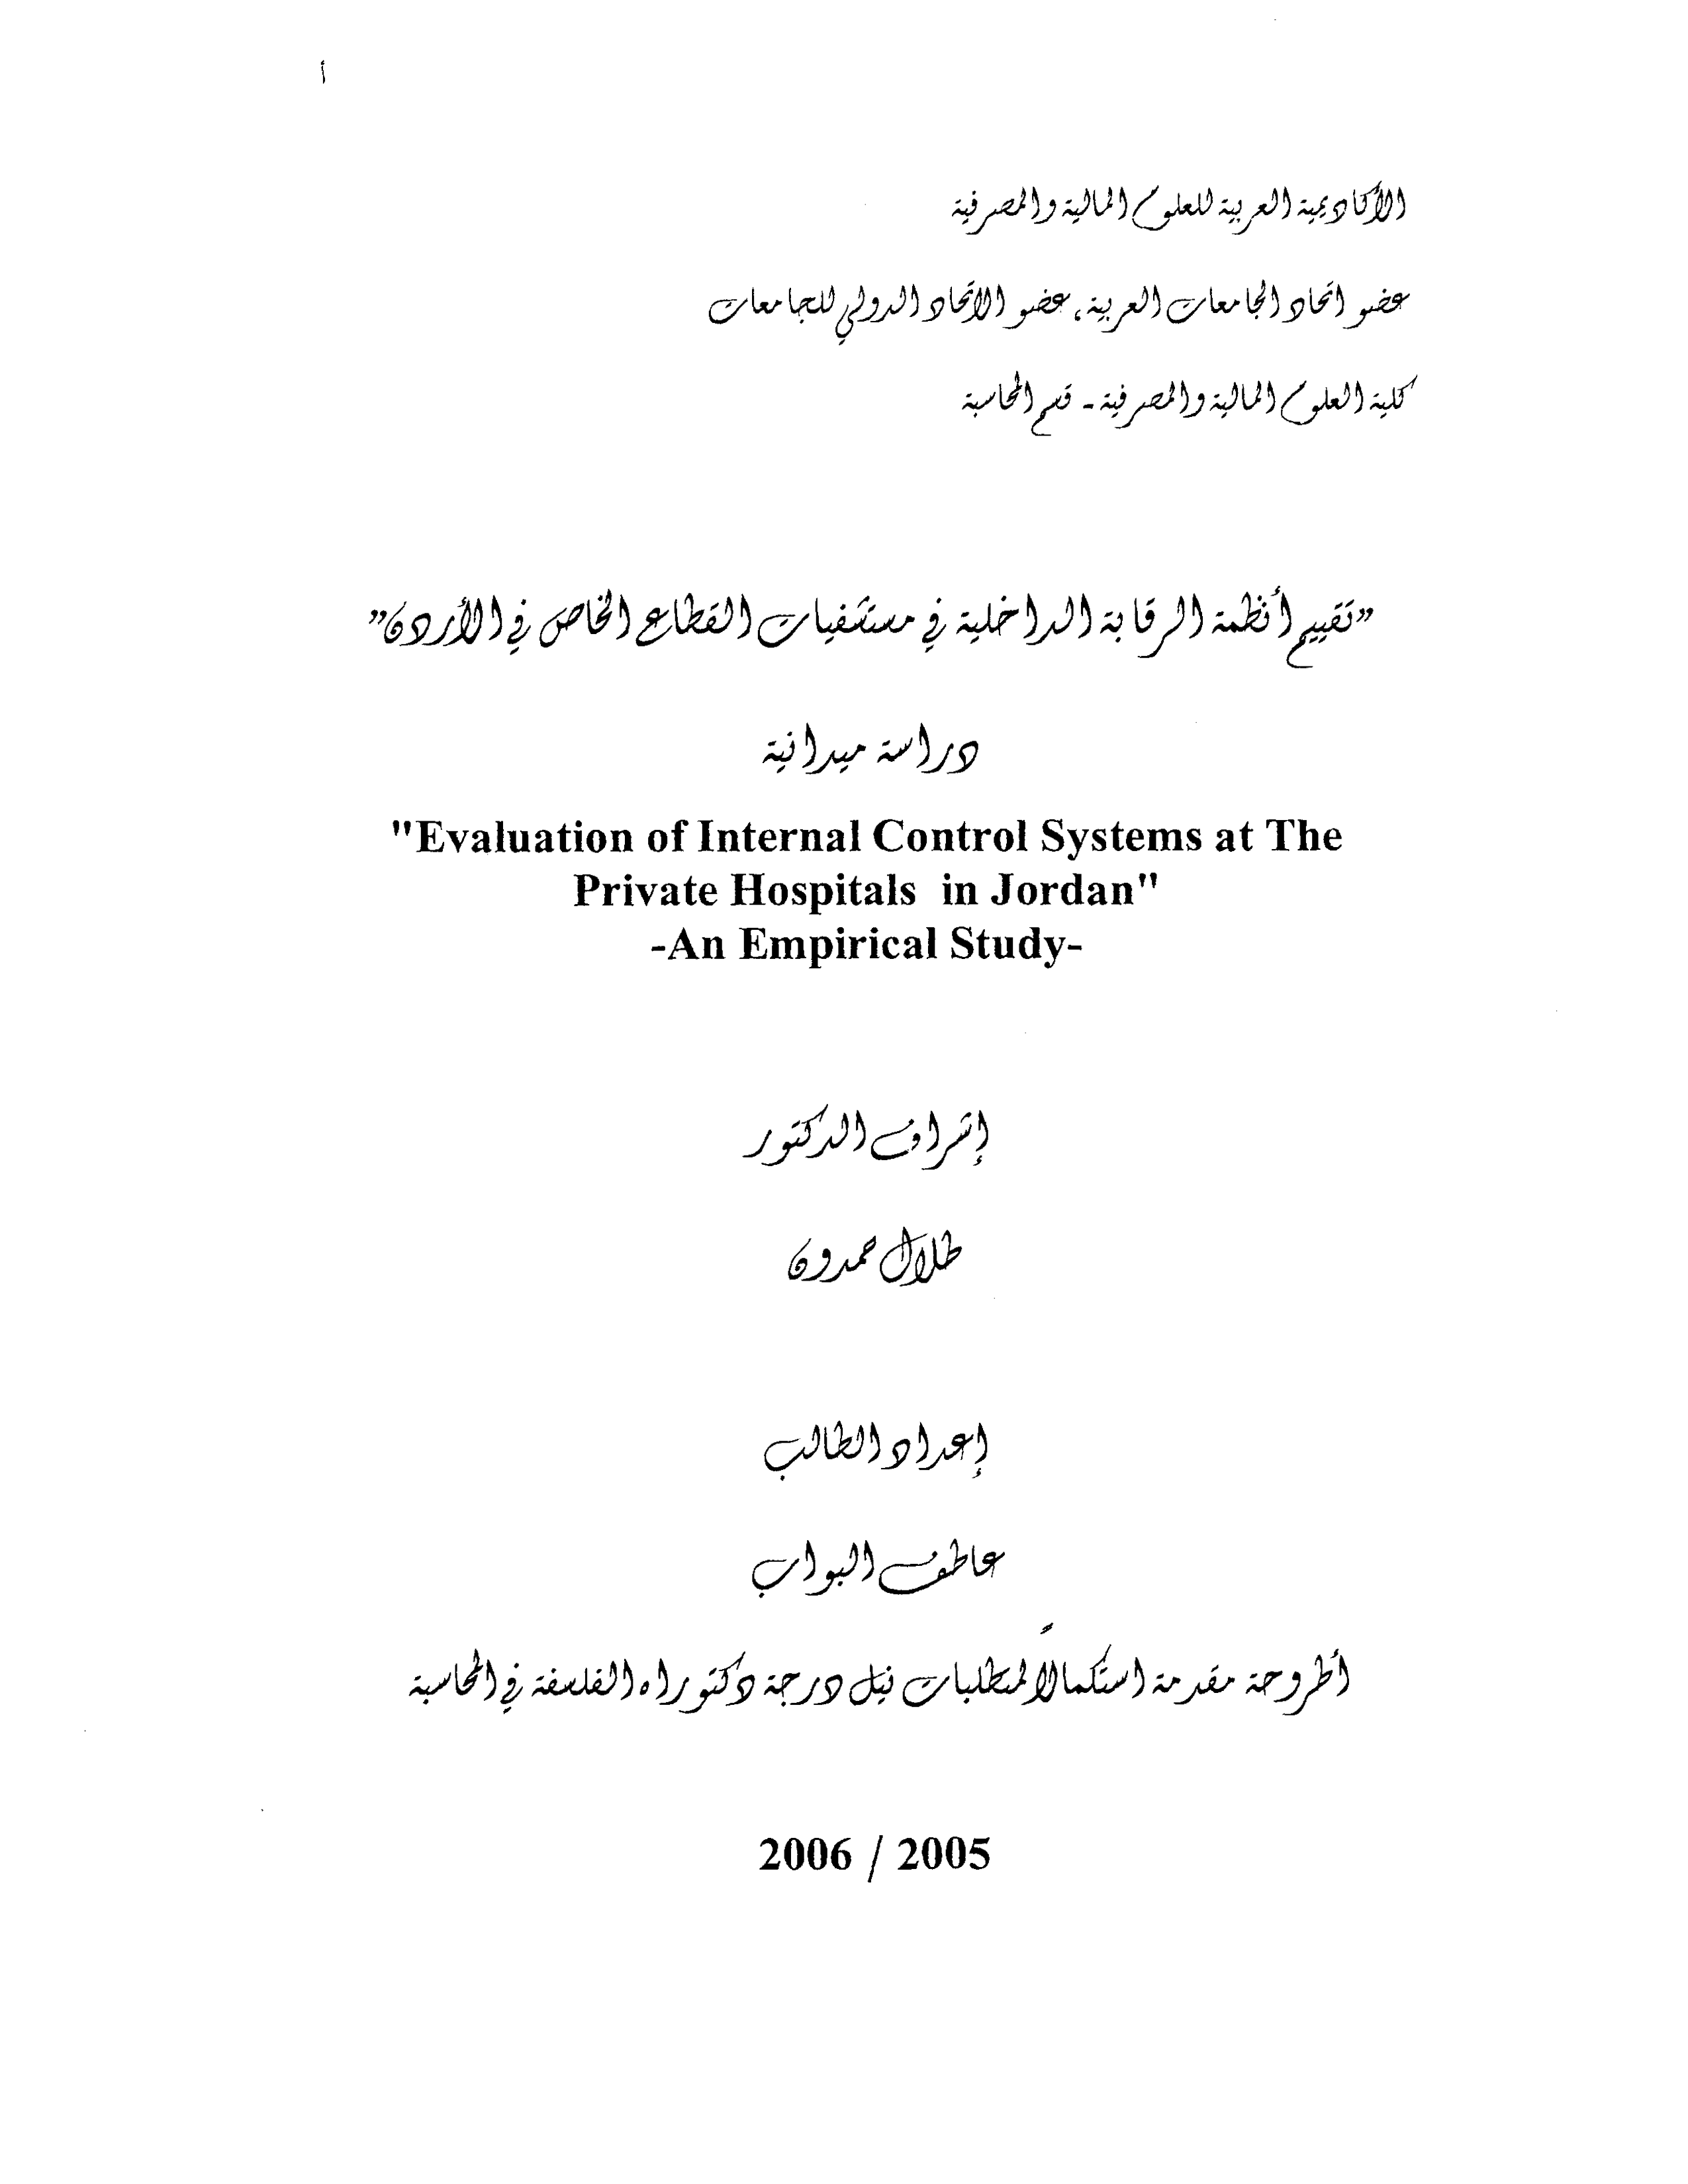 أ
الأكاديمية العربية للعلوم المالية والمصرفية
عضو اتحاد الجامعات العربية، عضو الاتحاد الدولي للجامعات
كلية العلوم المالية والمصرفية - قسم المحاسبة
”تقييم أنظمة الرقابة الداخلية في مستشفيات القطاع الخاص في الأردن“
دراسة ميدانية
"Evaluation of Internal Control Systems at The
Private Hospitals in Jordan"
-An Empirical Study-
إشراف الدكتور
طلال حمدون
إعداد الطالب
عاطف البواب
أطروحة مقدمة استكمالاً لمتطلبات نيل درجة دكتوراه الفلسفة في المحاسبة
2006 / 2005